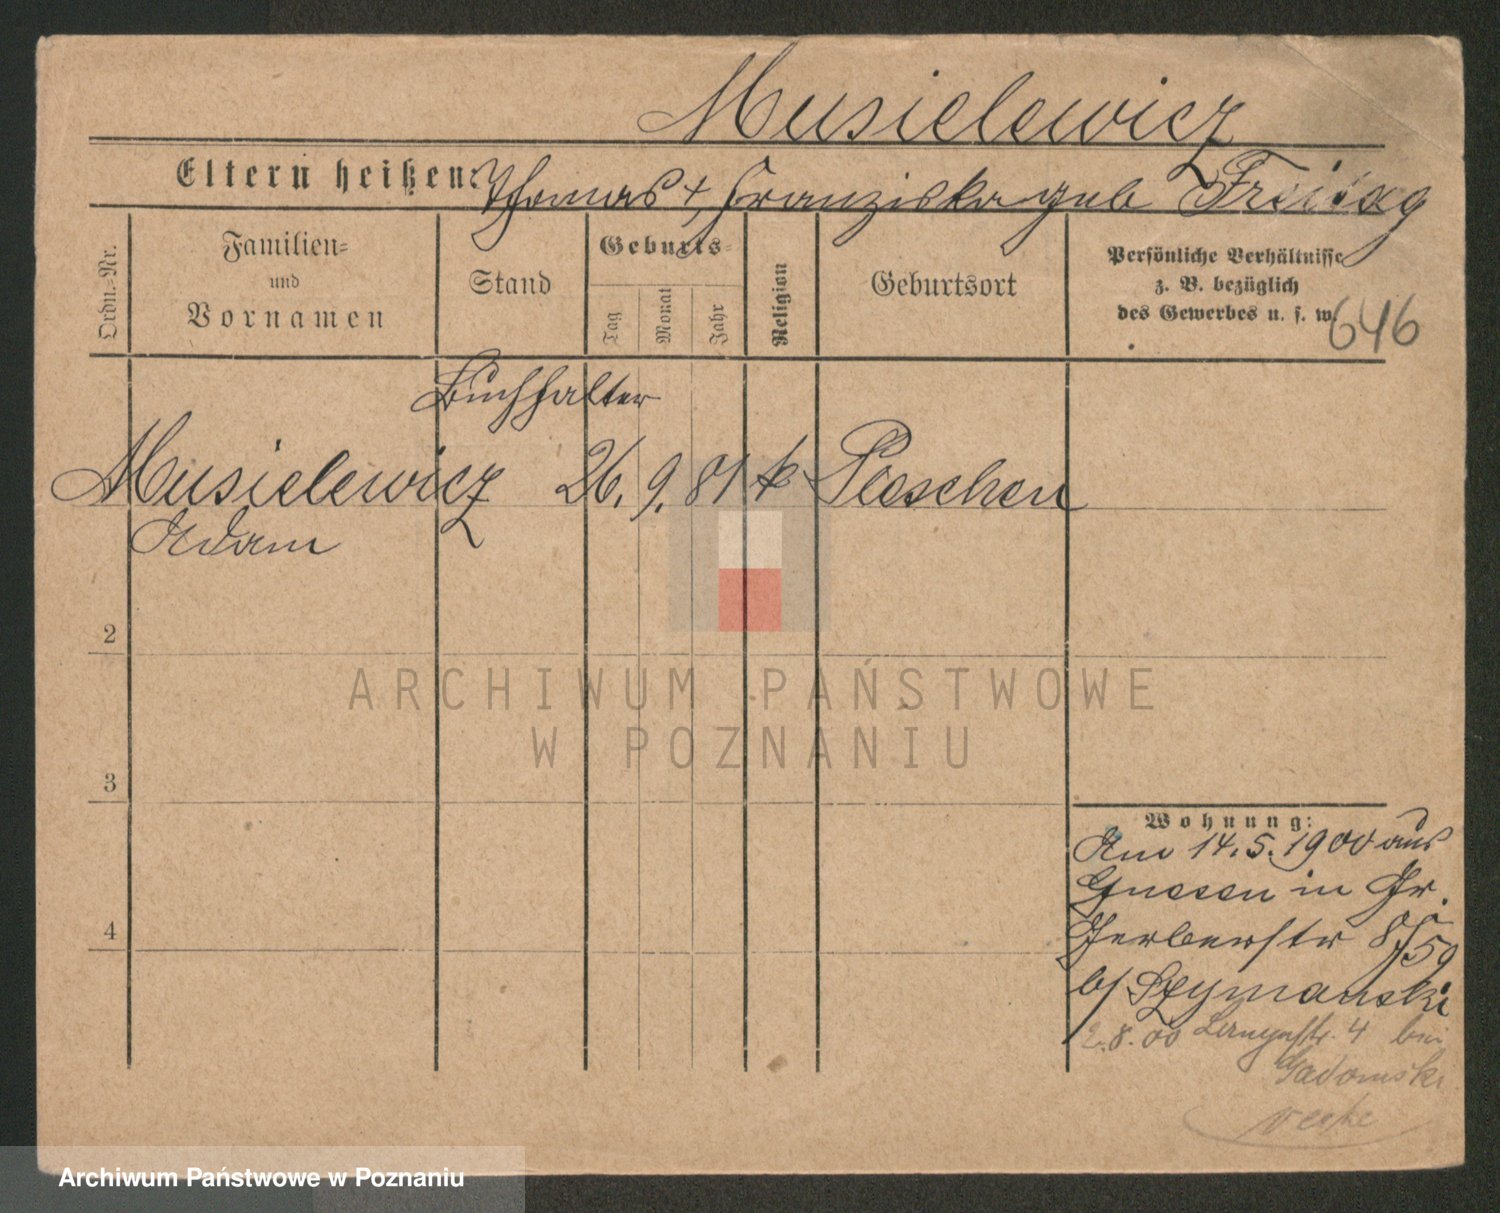 Musielewicz
Eltern heißen: Thomas †, Franziska geb Freitag
Ordn.-Nr.
Familien-
und
Vornamen
Stand
Geburts-
Tag
Monat
Jahr
Religion
Geburtsort
Persönliche Verhältnisse
z. B. bezüglich
des Gewerbes u. s. w.
646
Buchhalter
Musielewicz 26. 9. 81 k Pleschen
Adam
2
3
4
Wohnung:
Am 14.5.1900 aus
Gnesen in Gr.
Gerberstr 8/59
b/ Szymanski
2.8.00 4 bei
Gadomski
ARCHIWUM PAŃSTWOWE
W POZNANIU
Archiwum Państwowe w Poznaniu